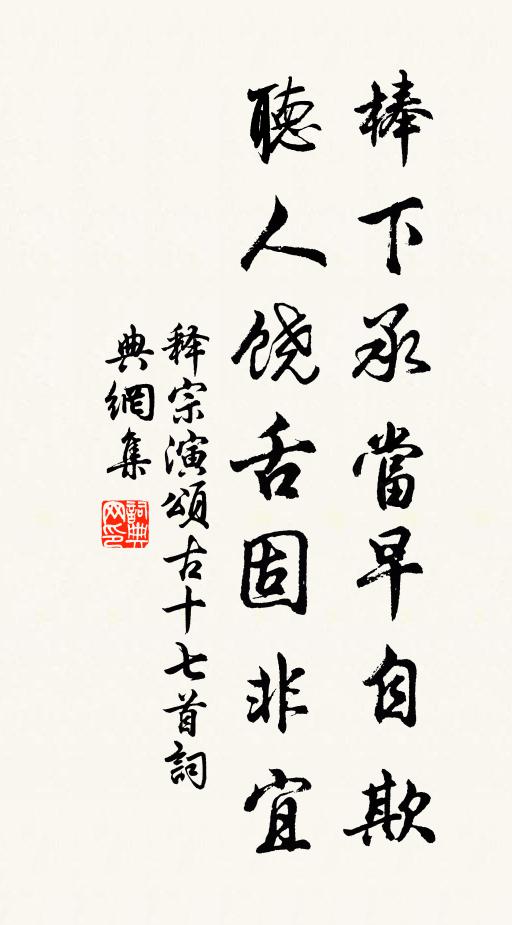 棒下承當早自欺
聽人饒舌固非宜
释宗演頌古十七首詞
典網集
詞典网印